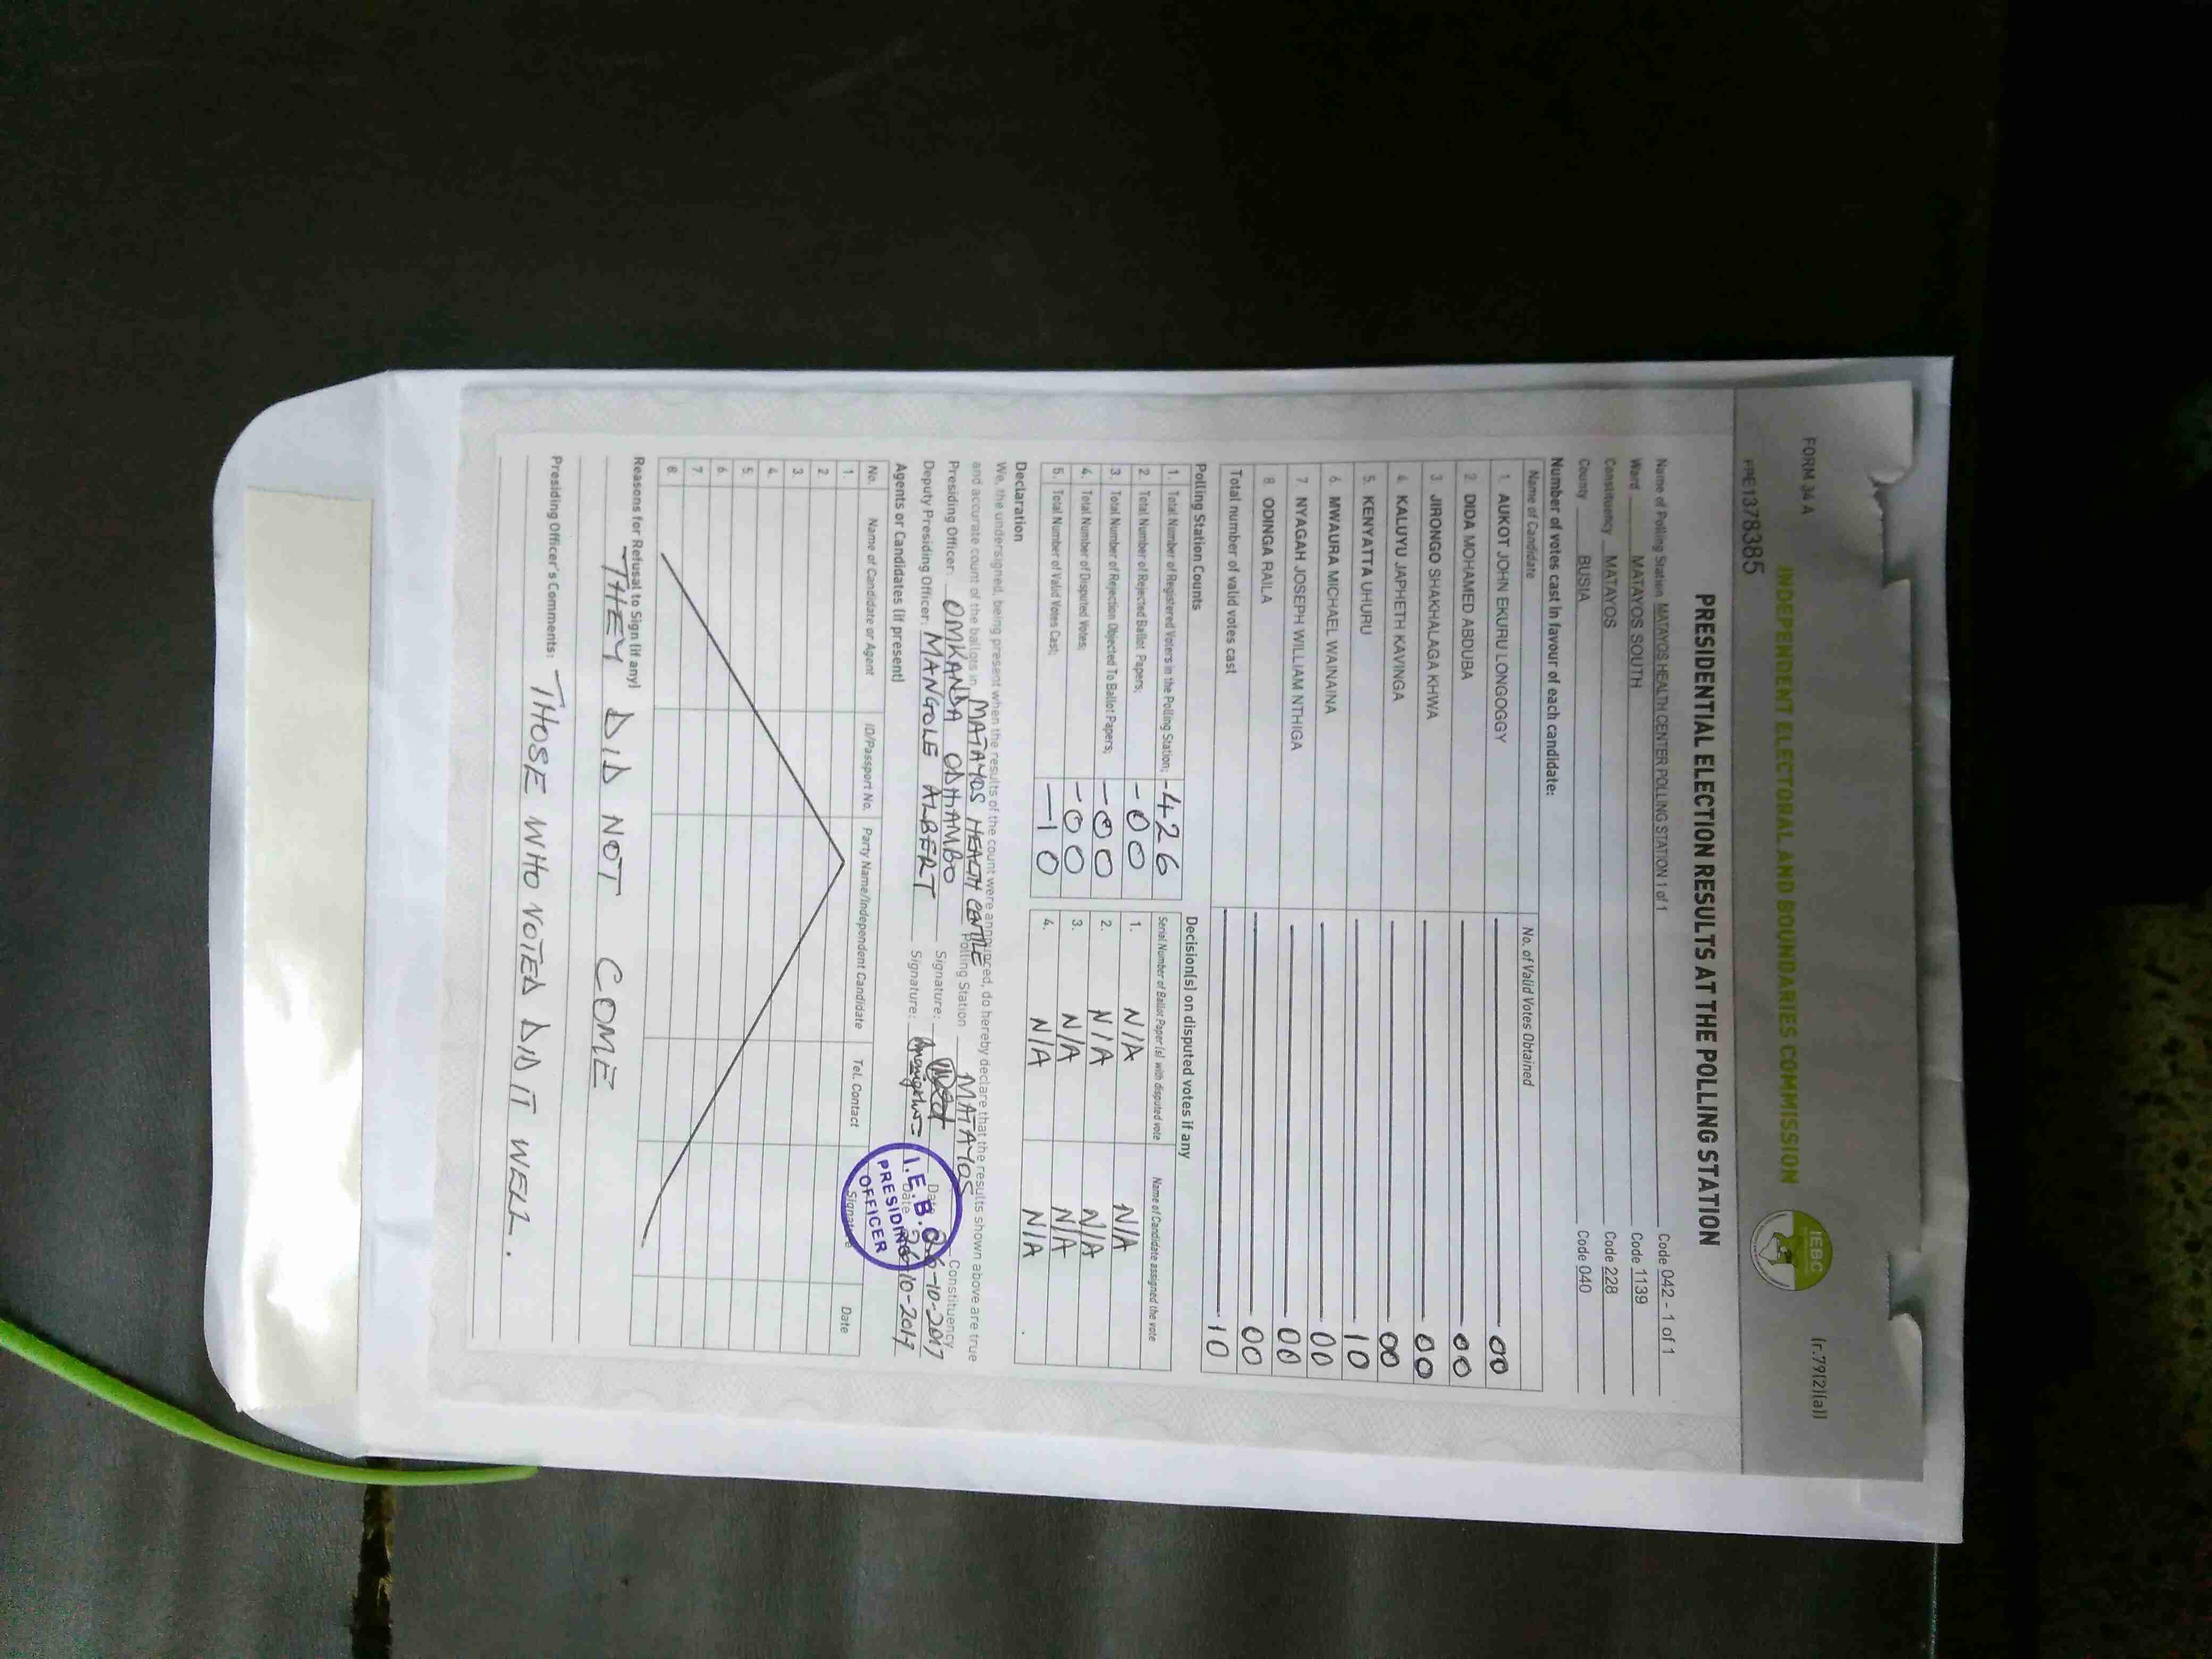 FORM 34 A
(r.79(2)(a))
INDEPENDENT ELECTORAL AND BOUNDARIES COMMISSION
IEBC
PRE1378385
PRESIDENTIAL ELECTION RESULTS AT THE POLLING STATION
Name of Polling Station MATAYOS HEALTH CENTER POLLING STATION 1 of 1 Code 042 - 1 of 1
Ward MATAYOS SOUTH Code 1139
Constituency MATAYOS Code 228
County BUSIA Code 040
Number of votes cast in favour of each candidate:
Name of Candidate No. of Valid Votes Obtained
1. AUKOT JOHN EKURU LONGOGGY 00
2. DIDA MOHAMED ABDUBA 00
3. JIRONGO SHAKHALAGA KHWA 00
4. KALUYU JAPHETH KAVINGA 00
5. KENYATTA UHURU 10
6. MWAURA MICHAEL WAINAINA 00
7. NYAGAH JOSEPH WILLIAM NTHIGA 00
8. ODINGA RAILA 00
Total number of valid votes cast 10
Polling Station Counts
1. Total Number of Registered Voters in the Polling Station; -426
2. Total Number of Rejected Ballot Papers; -000
3. Total Number of Rejection Objected To Ballot Papers; -000
4. Total Number of Disputed Votes; -000
5. Total Number of Valid Votes Cast; -10
Decision(s) on disputed votes if any
Serial Number of Ballot Paper(s) with disputed vote Name of Candidate assigned the vote
1. N/A N/A
2. N/A N/A
3. N/A N/A
4. N/A N/A
Declaration
We, the undersigned, being present when the results of the count were announced, do hereby declare that the results shown above are true
and accurate count of the ballots in MATAYOS HEALTH CENTRE Polling Station MATAYOS Constituency
Presiding Officer: OMKANDA ODHIAMBO Signature: Date 26-10-2017
Deputy Presiding Officer: MANGOLE ALBERT Signature: Date 26-10-2017
I.E.B.C
PRESIDING
OFFICER
Agents or Candidates (if present)
No. Name of Candidate or Agent ID/Passport No. Party Name/Independent Candidate Tel. Contact Signature Date
1.
2.
3.
4.
5.
6.
7.
8.
Reasons for Refusal to Sign (if any)
THEY DID NOT COME
Presiding Officer's Comments: THOSE WHO VOTED DID IT WELL.